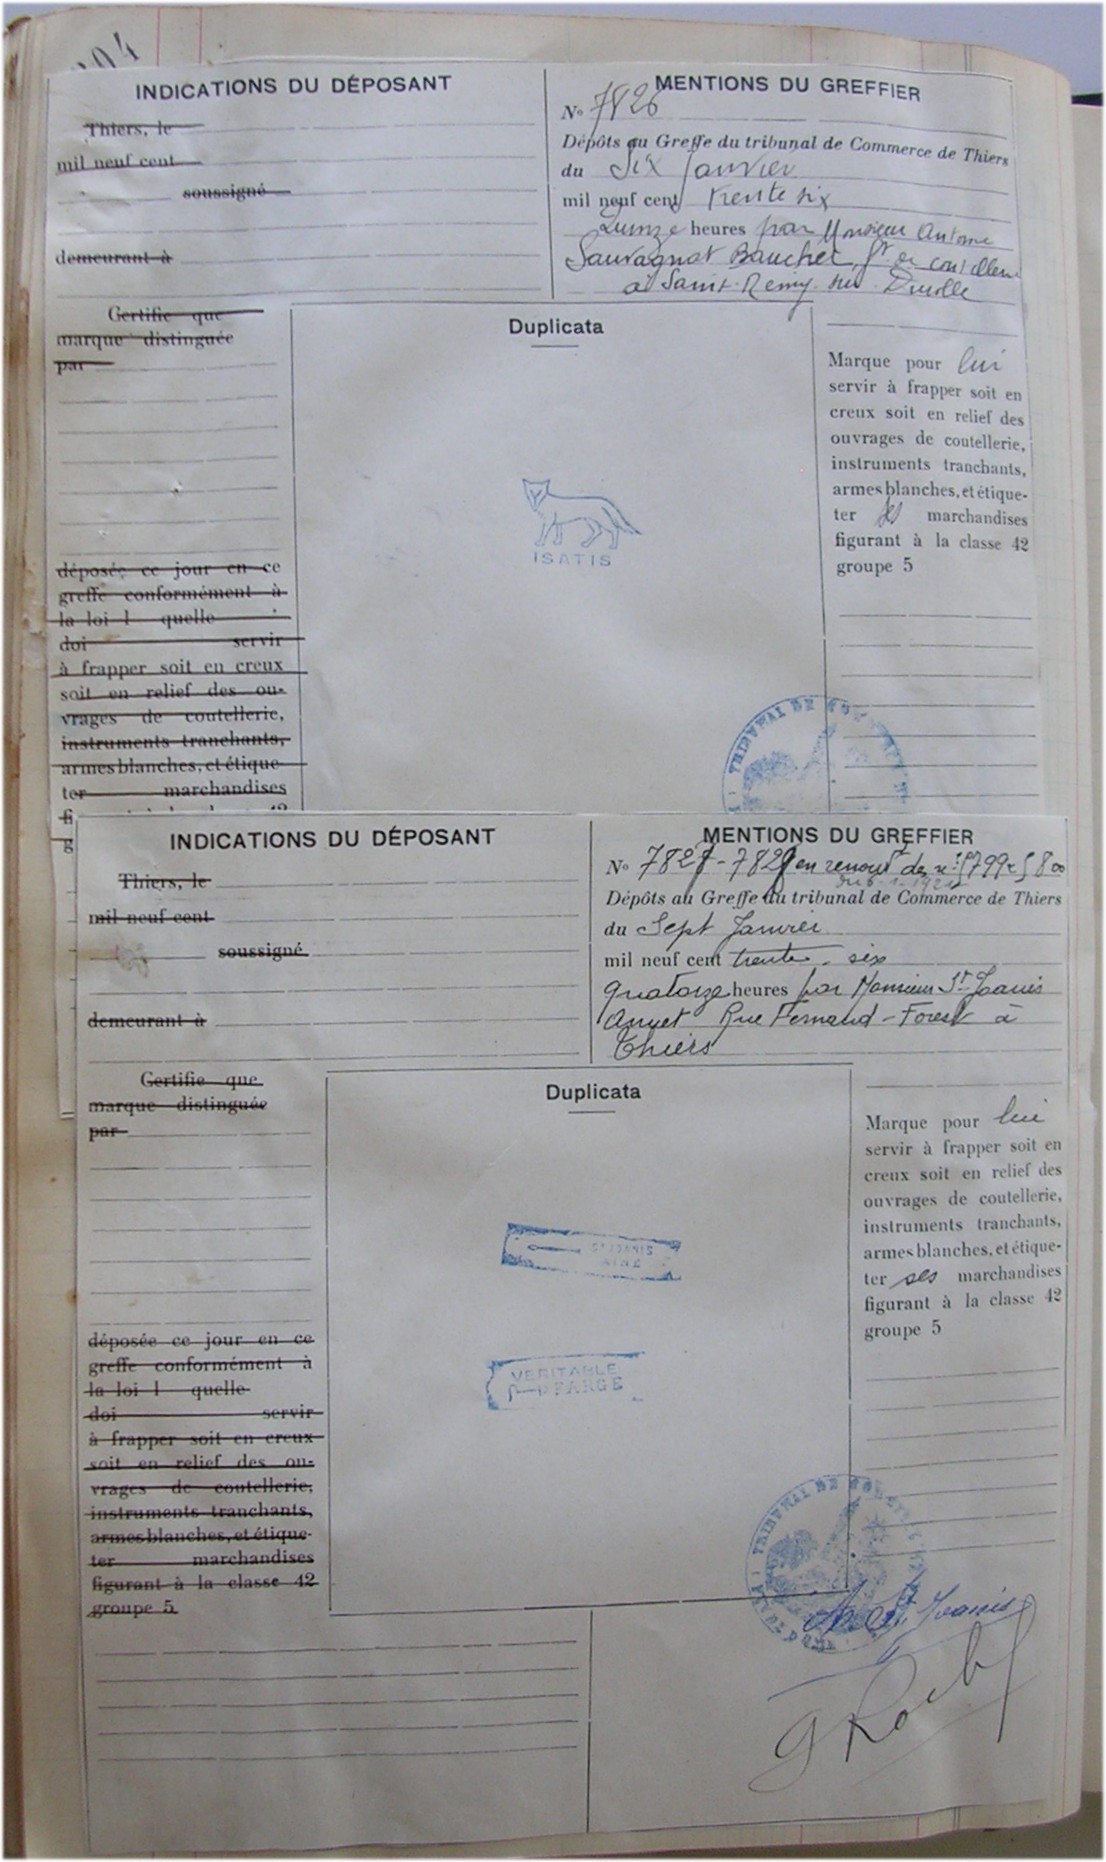 INDICATIONS DU DÉPOSANT
Thiers, le
mil neuf cent
soussigné
demeurant à
MENTIONS DU GREFFIER
No 7826
Dépôts au Greffe du tribunal de Commerce de Thiers
du Six Janvier
mil neuf cent trente six
Quinze heures par Monsieur Antoine
Sauvagnat Bauchet, ft de coutellerie
à Saint-Remy sur Durolle
Certifie que
marque distinguée
par
déposée ce jour en ce
greffe conformément à
la loi l quelle
doi servir
à frapper soit en creux
soit en relief des ou-
vrages de coutellerie,
instruments tranchants,
armes blanches, et étique-
ter marchandises
Duplicata
ISATIS
Marque pour lui
servir à frapper soit en
creux soit en relief des
ouvrages de coutellerie,
instruments tranchants,
armes blanches, et étique-
ter ses marchandises
figurant à la classe 42
groupe 5
TRIBUNAL DE
INDICATIONS DU DÉPOSANT
Thiers, le
mil neuf cent
soussigné
demeurant à
MENTIONS DU GREFFIER
No 7828-7829 en renouvt des nos 5799 & 5800
Dépôts au Greffe du tribunal de Commerce de Thiers
du Sept Janvier
mil neuf cent trente-six
quatorze heures par Monsieur St Joanis
Rue Fernand-Forest à
Thiers
Certifie que
marque distinguée
par
déposée ce jour en ce
greffe conformément à
la loi l quelle
doi servir
à frapper soit en creux
soit en relief des ou-
vrages de coutellerie,
instruments tranchants,
armes blanches, et étique-
ter marchandises
figurant à la classe 42
groupe 5.
Duplicata
ST JOANIS
AINE
VERITABLE
PFARGE
Marque pour lui
servir à frapper soit en
creux soit en relief des
ouvrages de coutellerie,
instruments tranchants,
armes blanches, et étique-
ter ses marchandises
figurant à la classe 42
groupe 5
TRIBUNAL DE
St Joanis